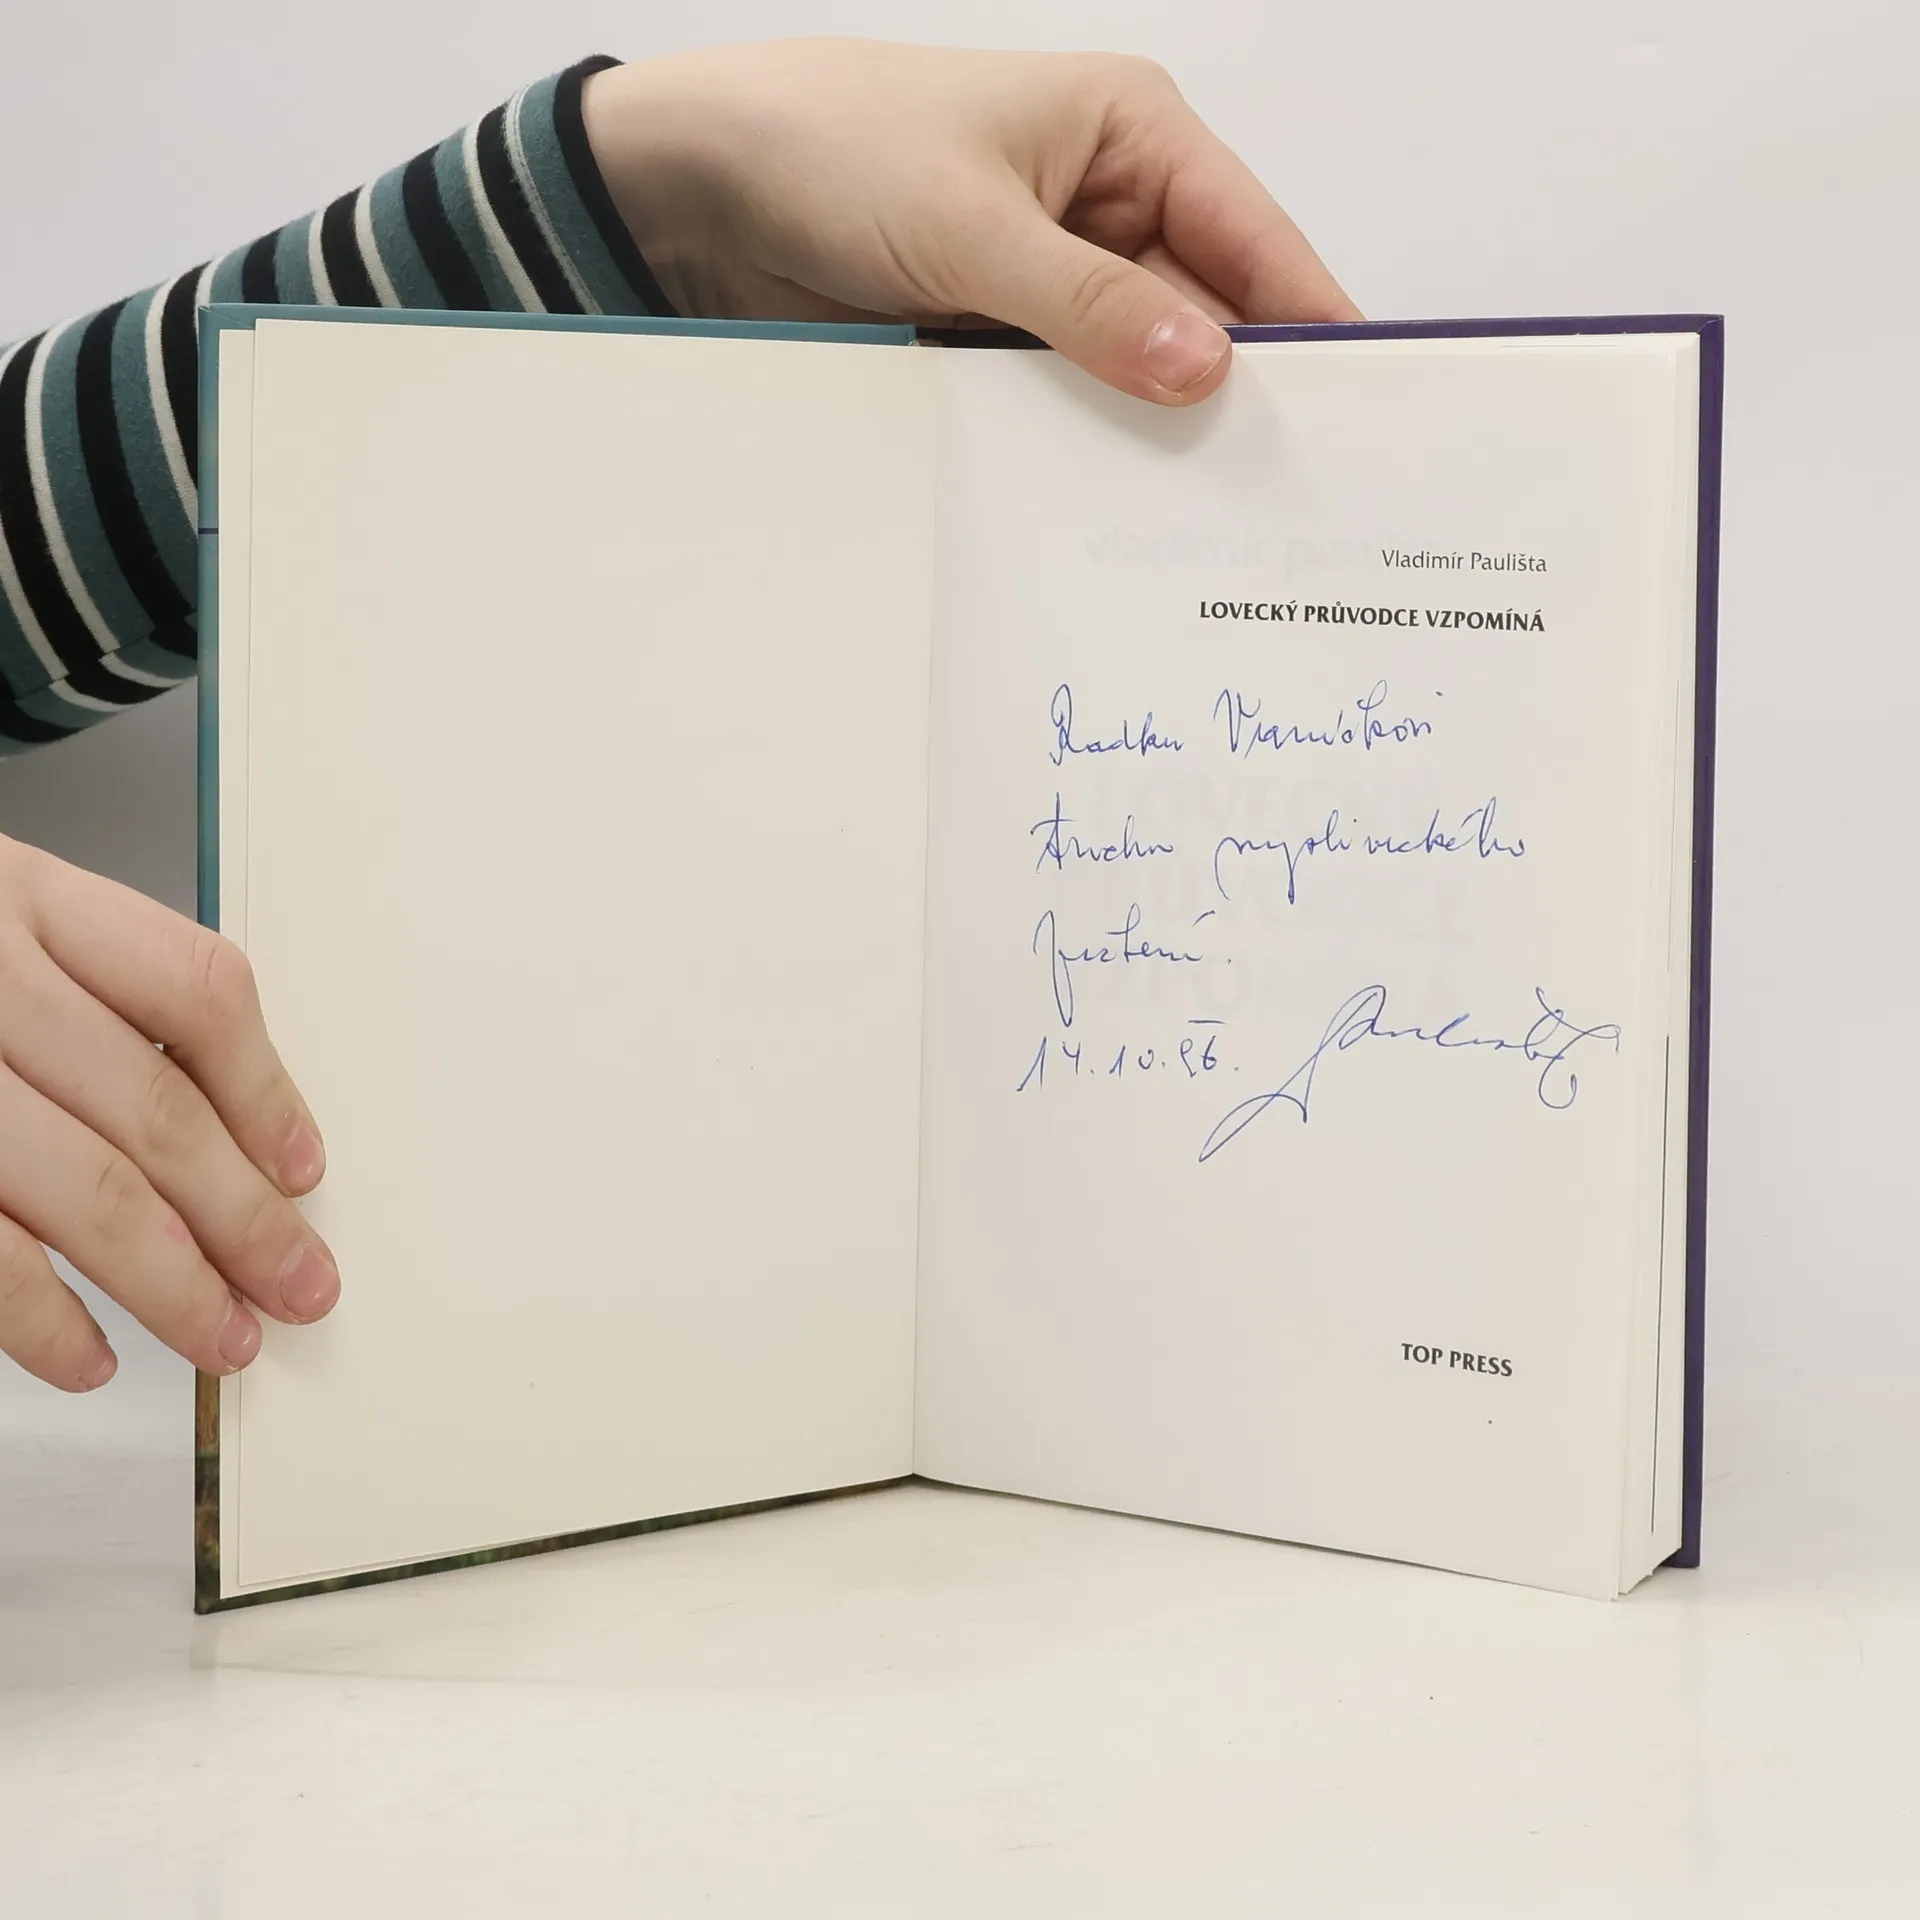 Vladimír Paulišta
LOVECKÝ PRŮVODCE VZPOMÍNÁ
Radku Vranákovi
trochu mysliveckého
počtení.
14.10.96.
Paulišta
TOP PRESS